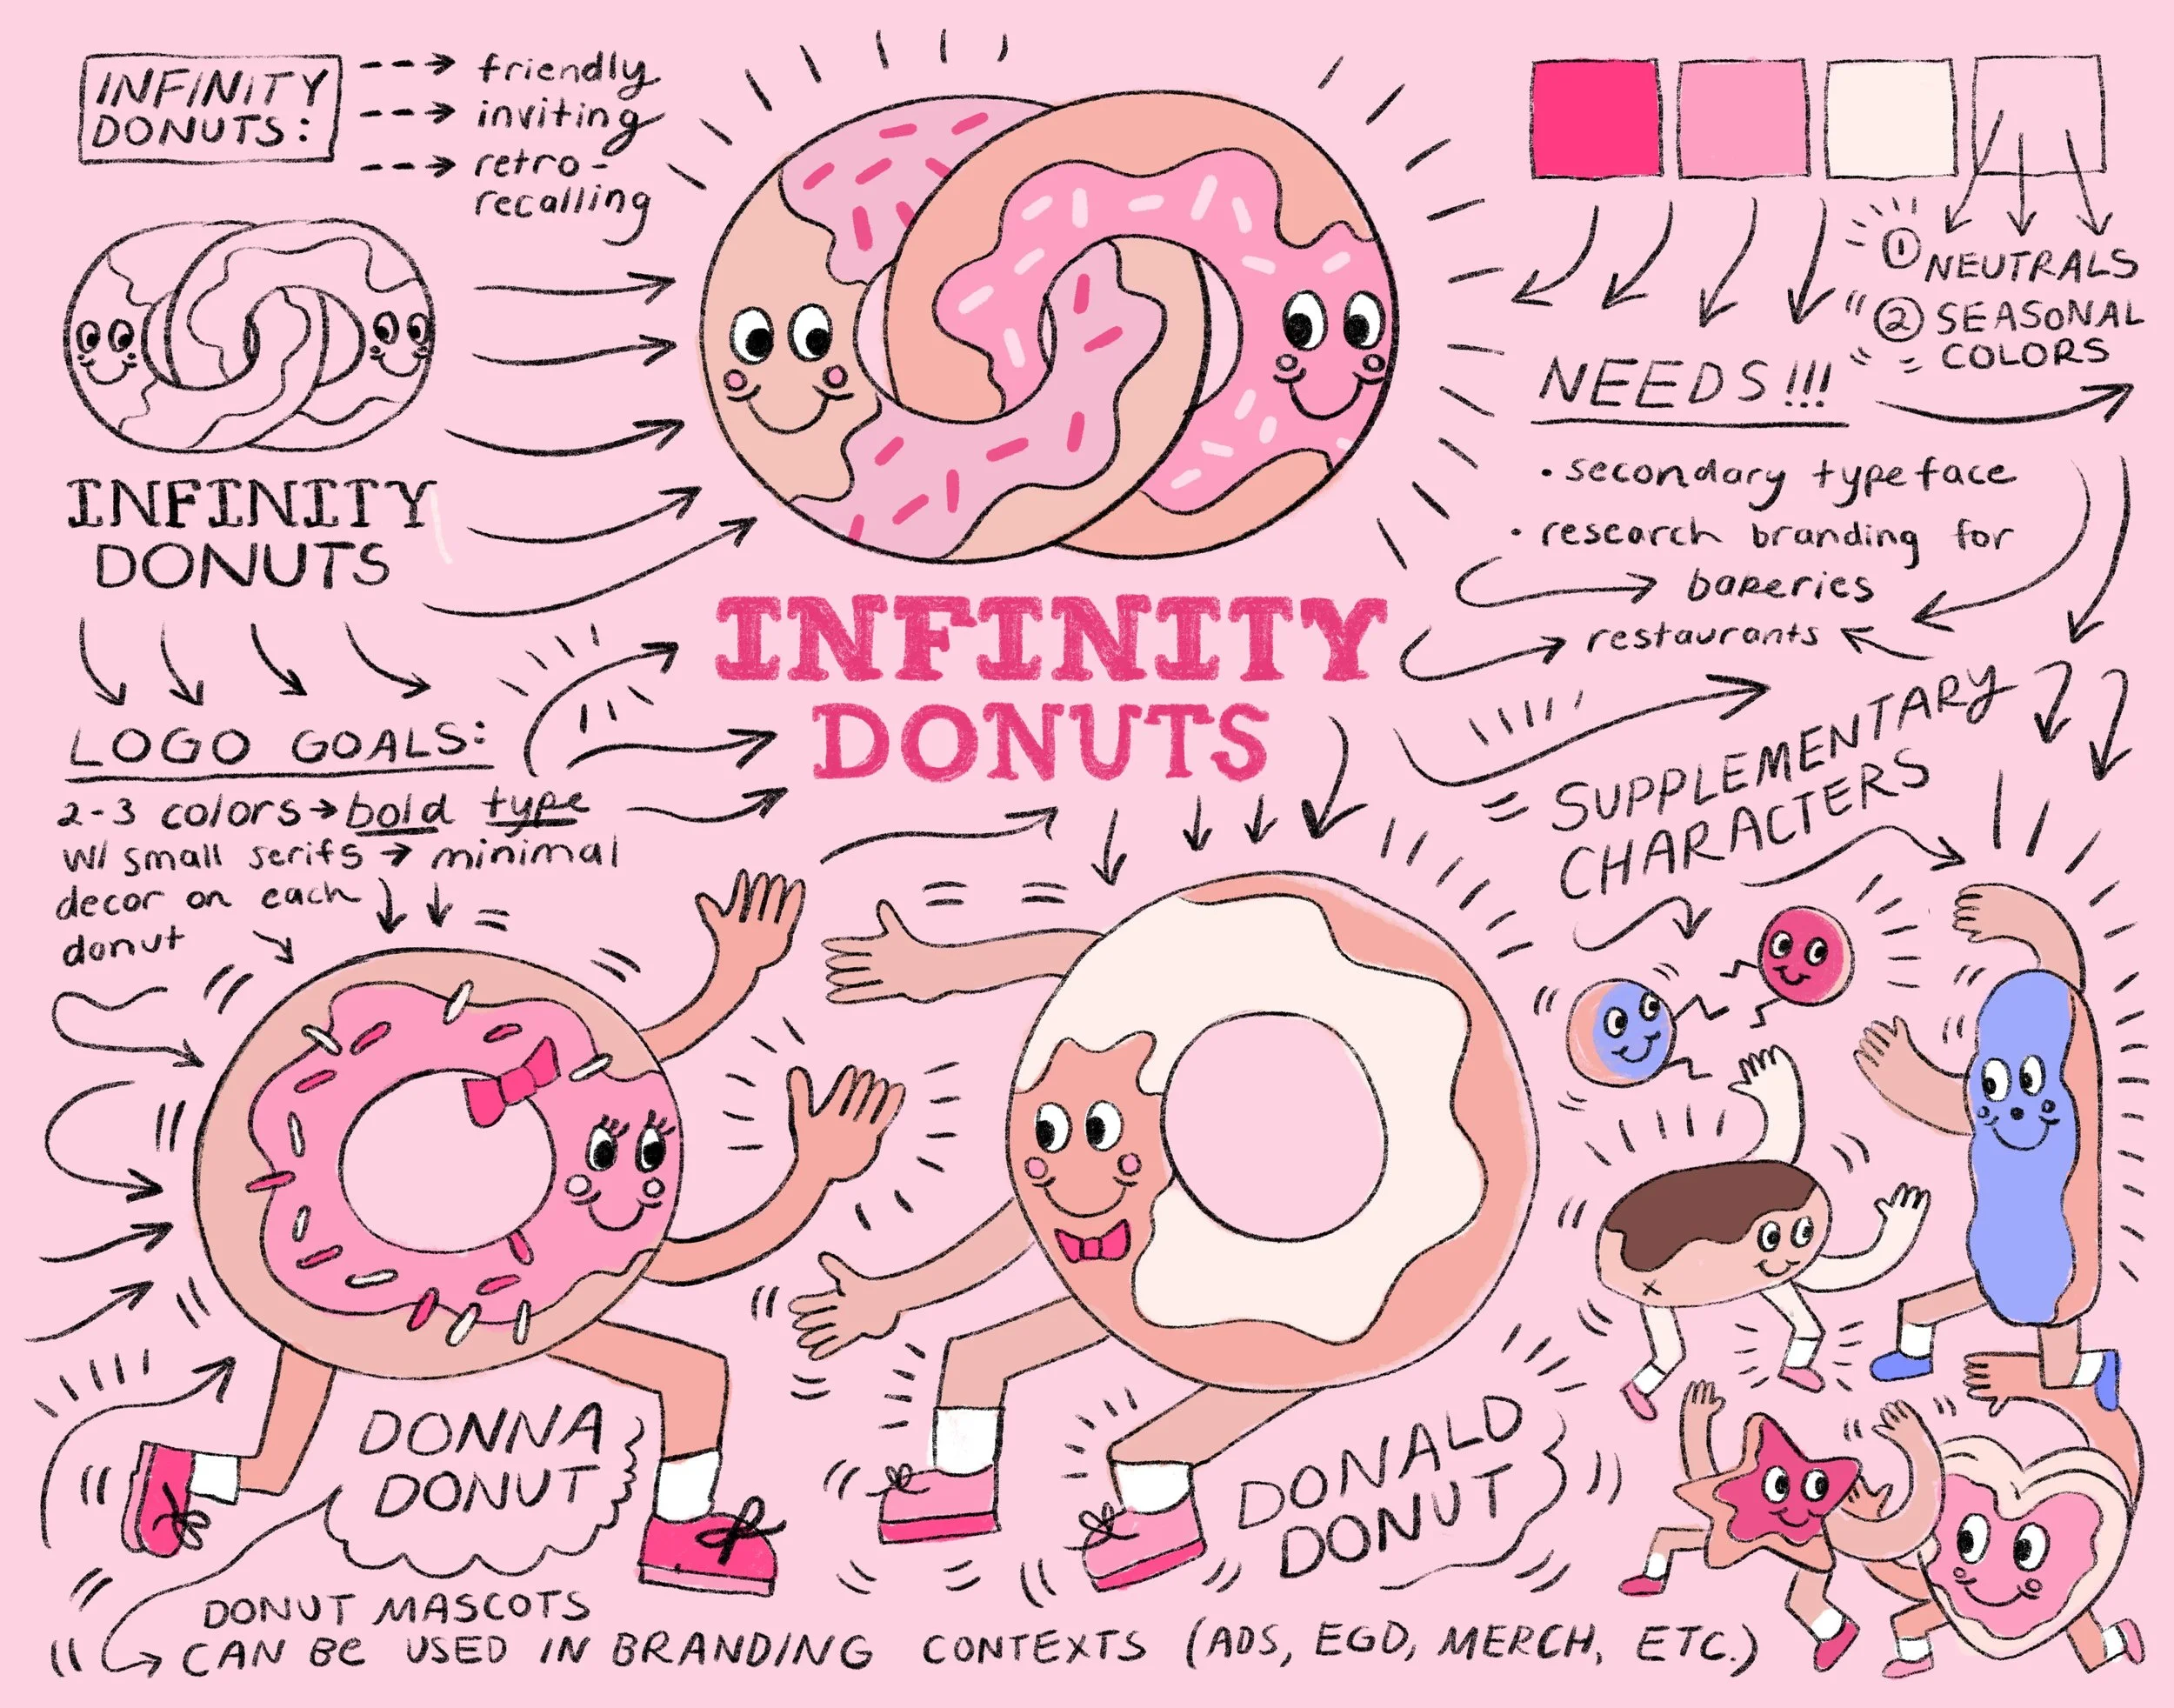 INFINITY
DONUTS:
friendly
inviting
retro-
recalling
INFINITY
DONUTS
LOGO GOALS:
2-3 colors→bold type
w/ small serifs → minimal
decor on each
donut
INFINITY
DONUTS
① NEUTRALS
② SEASONAL
COLORS
NEEDS!!!
• secondary typeface
• research branding for
bakeries
restaurants
SUPPLEMENTARY
CHARACTERS
DONNA
DONUT
DONALD
DONUT
DONUT MASCOTS
CAN BE USED IN BRANDING CONTEXTS (ADS, EGD, MERCH, ETC.)